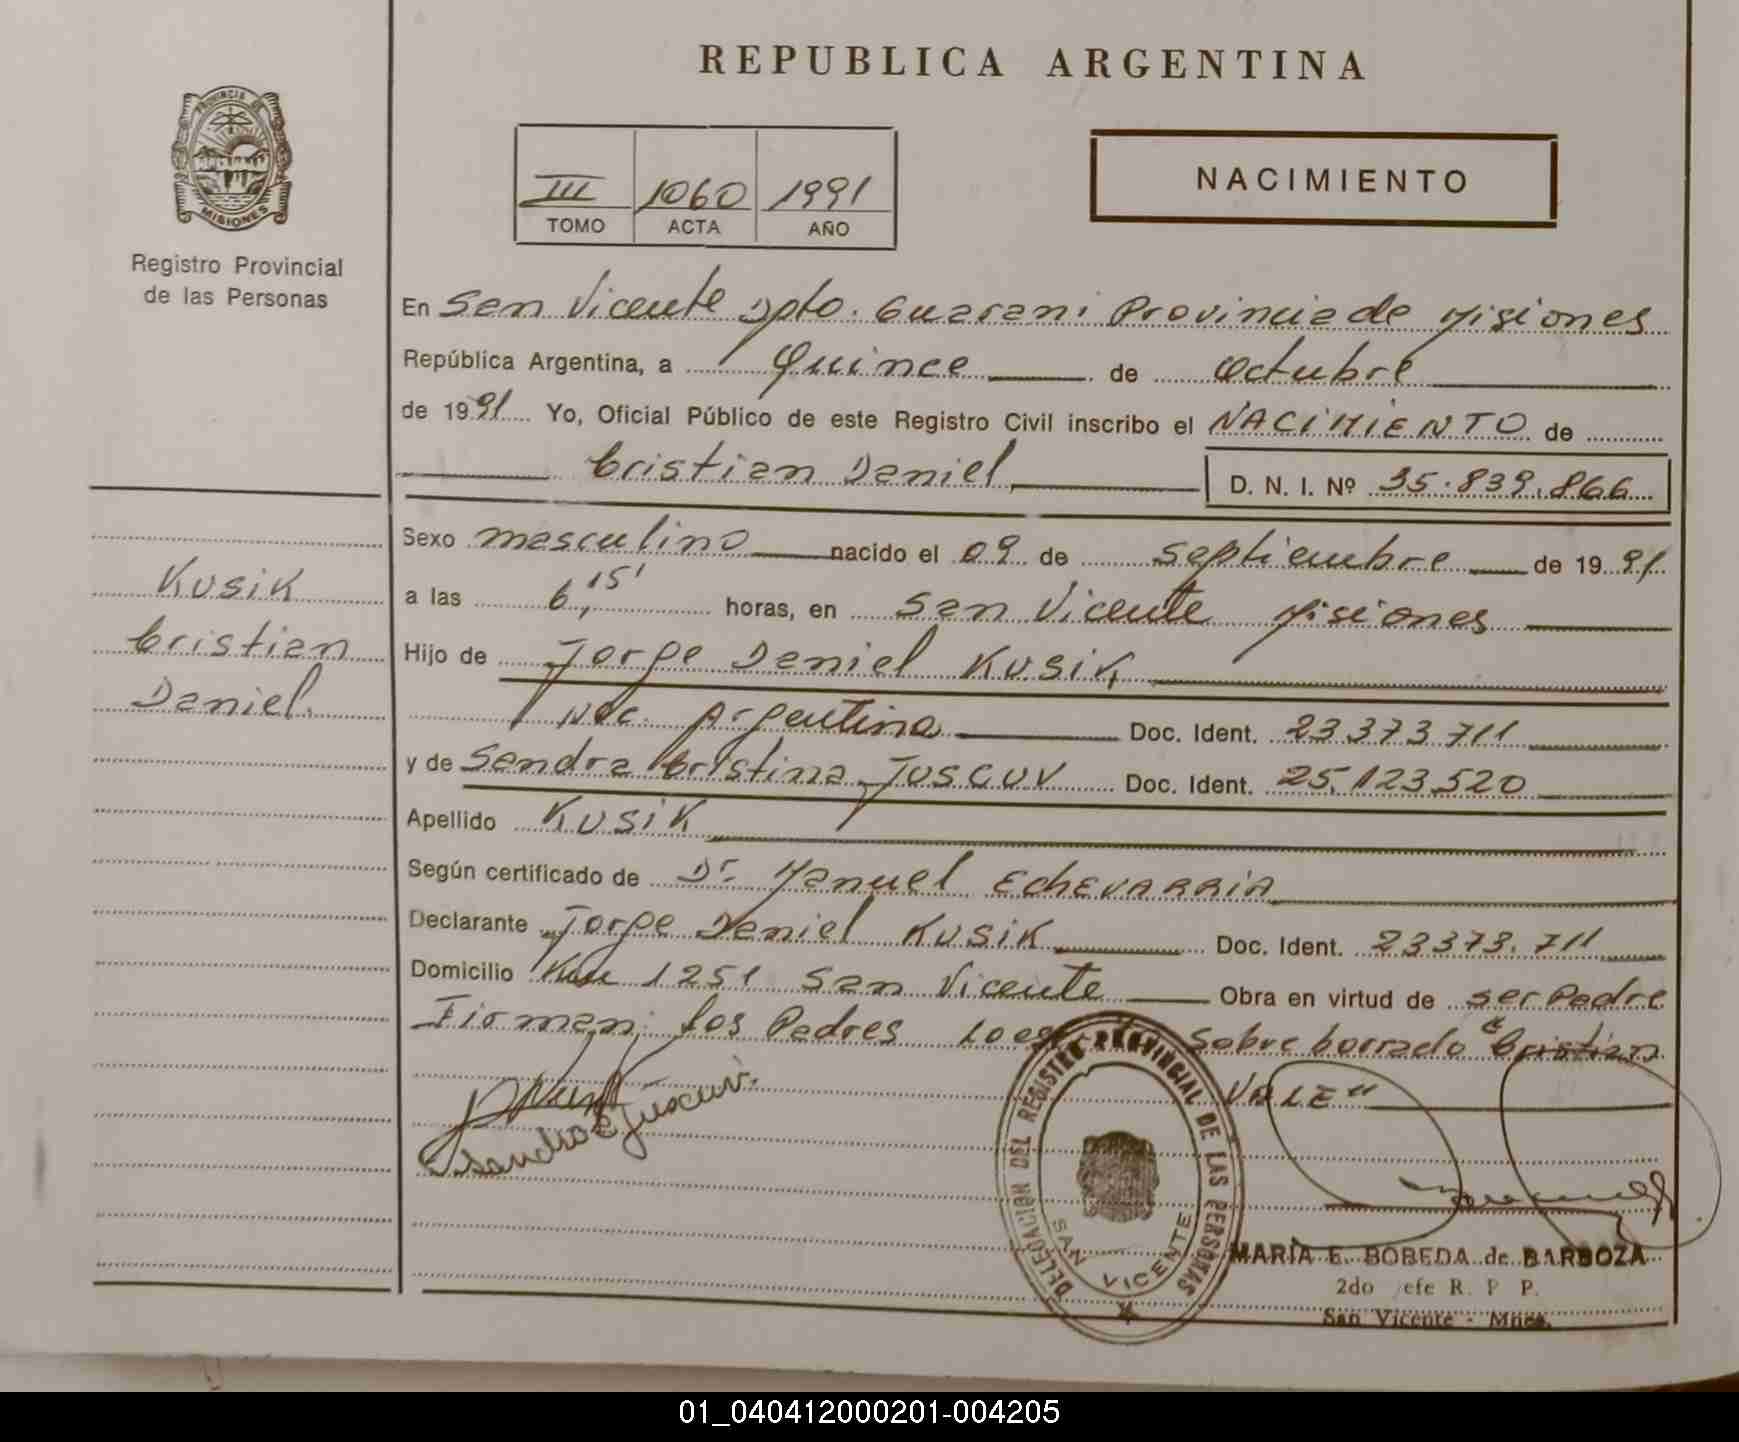 REPUBLICA ARGENTINA
PROVINCIA DE
MISIONES
Registro Provincial
de las Personas
III 1060 1991
TOMO ACTA AÑO
NACIMIENTO
En San Vicente Dpto. Guarani Provincia de Misiones
República Argentina, a Quince de Octubre
de 1991 Yo, Oficial Público de este Registro Civil inscribo el NACIMIENTO de
Cristian Daniel D. N. I. Nº 35.839.866
Kusik
Cristian
Daniel.
Sexo masculino nacido el 09 de septiembre de 1991
a las 6,15' horas, en San Vicente Misiones
Hijo de Jorge Daniel Kusik
Nac. Argentina Doc. Ident. 23.373.711
y de Sandra Cristina JUSCUV Doc. Ident. 25.123.520
Apellido KUSIK
Según certificado de Dr. Manuel Echevarria
Declarante Jorge Daniel Kusik Doc. Ident. 23373.711
Domicilio Km 1251 San Vicente Obra en virtud de ser Padre
Firman: los Padres Lo Sobre borrado "Cristian
VALE"
Sandra C Juscuv.
DELEGACION DEL REGISTRO PROVINCIAL DE LAS PERSONAS
SAN VICENTE
MARIA E. BOBEDA de BARBOZA
2do efe R. P P.
San Vicente - Mnes.
01_040412000201-004205